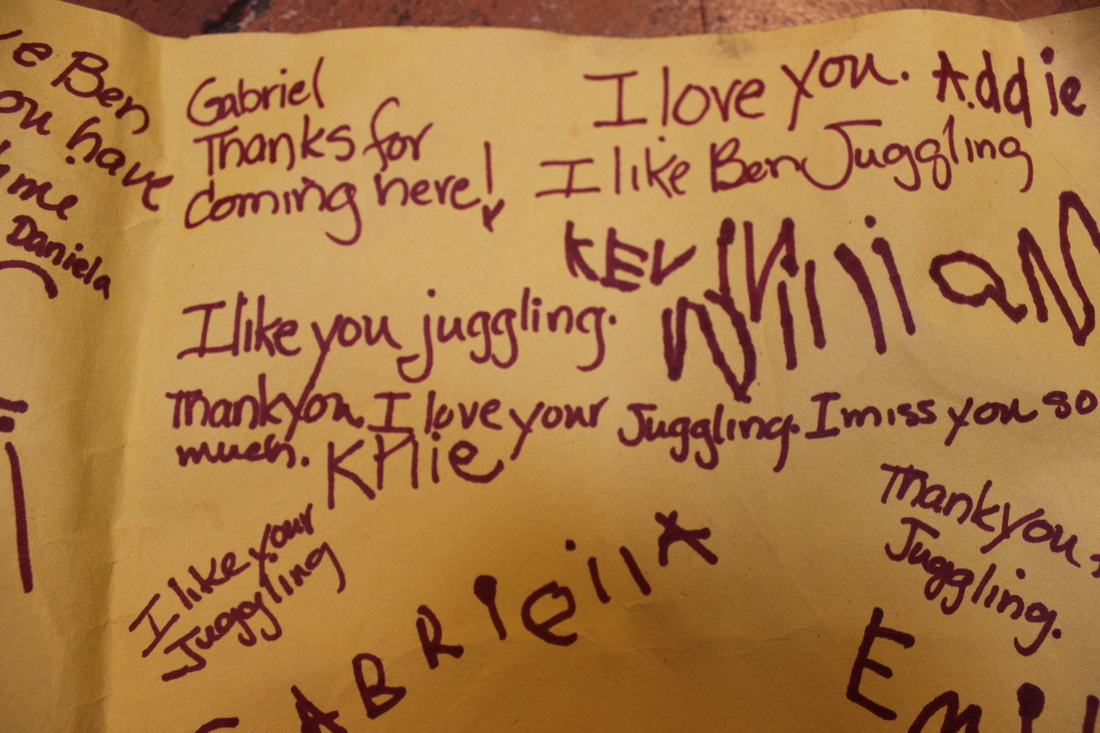 Ben
have
me
Daniela
Gabriel
Thanks for
coming here!
I love you. Addie
I like Ben Juggling
KEV
William
I like you juggling.
Thank you, I love your Juggling. I miss you so
much. Kylie
I like your
Juggling
GABRIEllA
Thank you
Juggling.